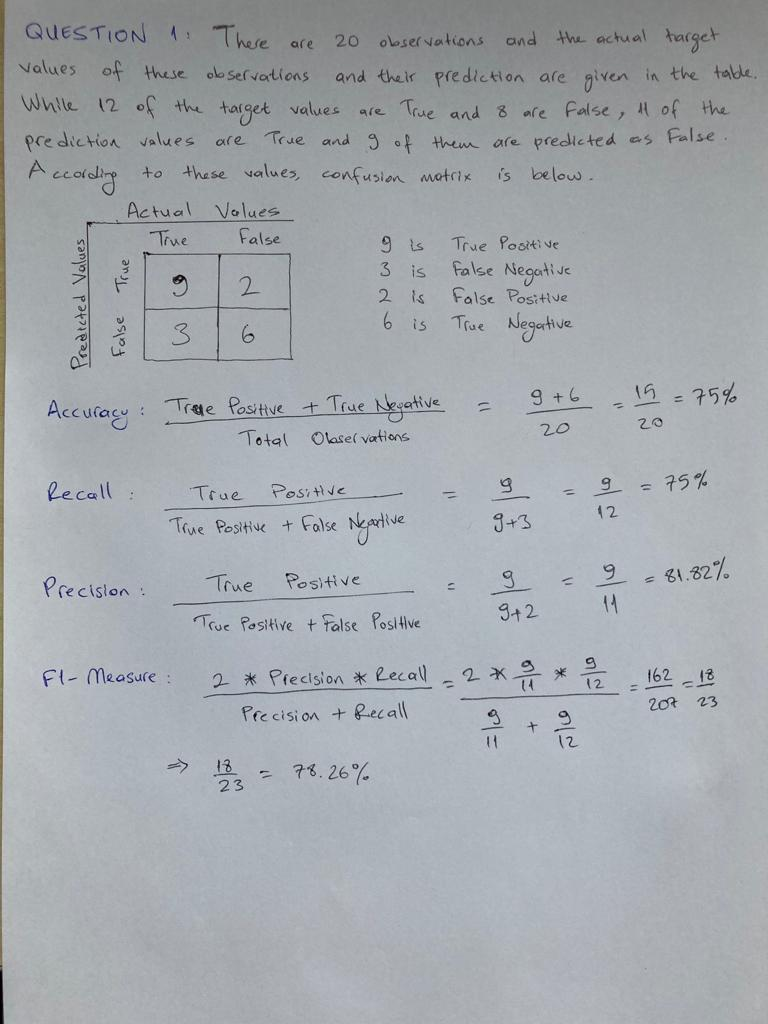 QUESTION 1: There are 20 observations and the actual target
values of these observations and their prediction are given in the table.
While 12 of the target values are True and 8 are False, 11 of the
prediction values are True and 9 of them are predicted as False.
According to these values, confusion matrix is below.
Actual Values
True False
Predicted Values
True 9 2
False 3 6
9 is True Positive
3 is False Negative
2 is False Positive
6 is True Negative
Accuracy: True Positive + True Negative / Total Observations = 9+6 / 20 = 15 / 20 = 75%
Recall: True Positive / True Positive + False Negative = 9 / 9+3 = 9 / 12 = 75%
Precision: True Positive / True Positive + False Positive = 9 / 9+2 = 9 / 11 = 81.82%
F1-Measure: 2 * Precision * Recall / Precision + Recall = 2 * 9/11 * 9/12 / 9/11 + 9/12 = 162 / 207 = 18 / 23
⇒ 18 / 23 = 78.26%